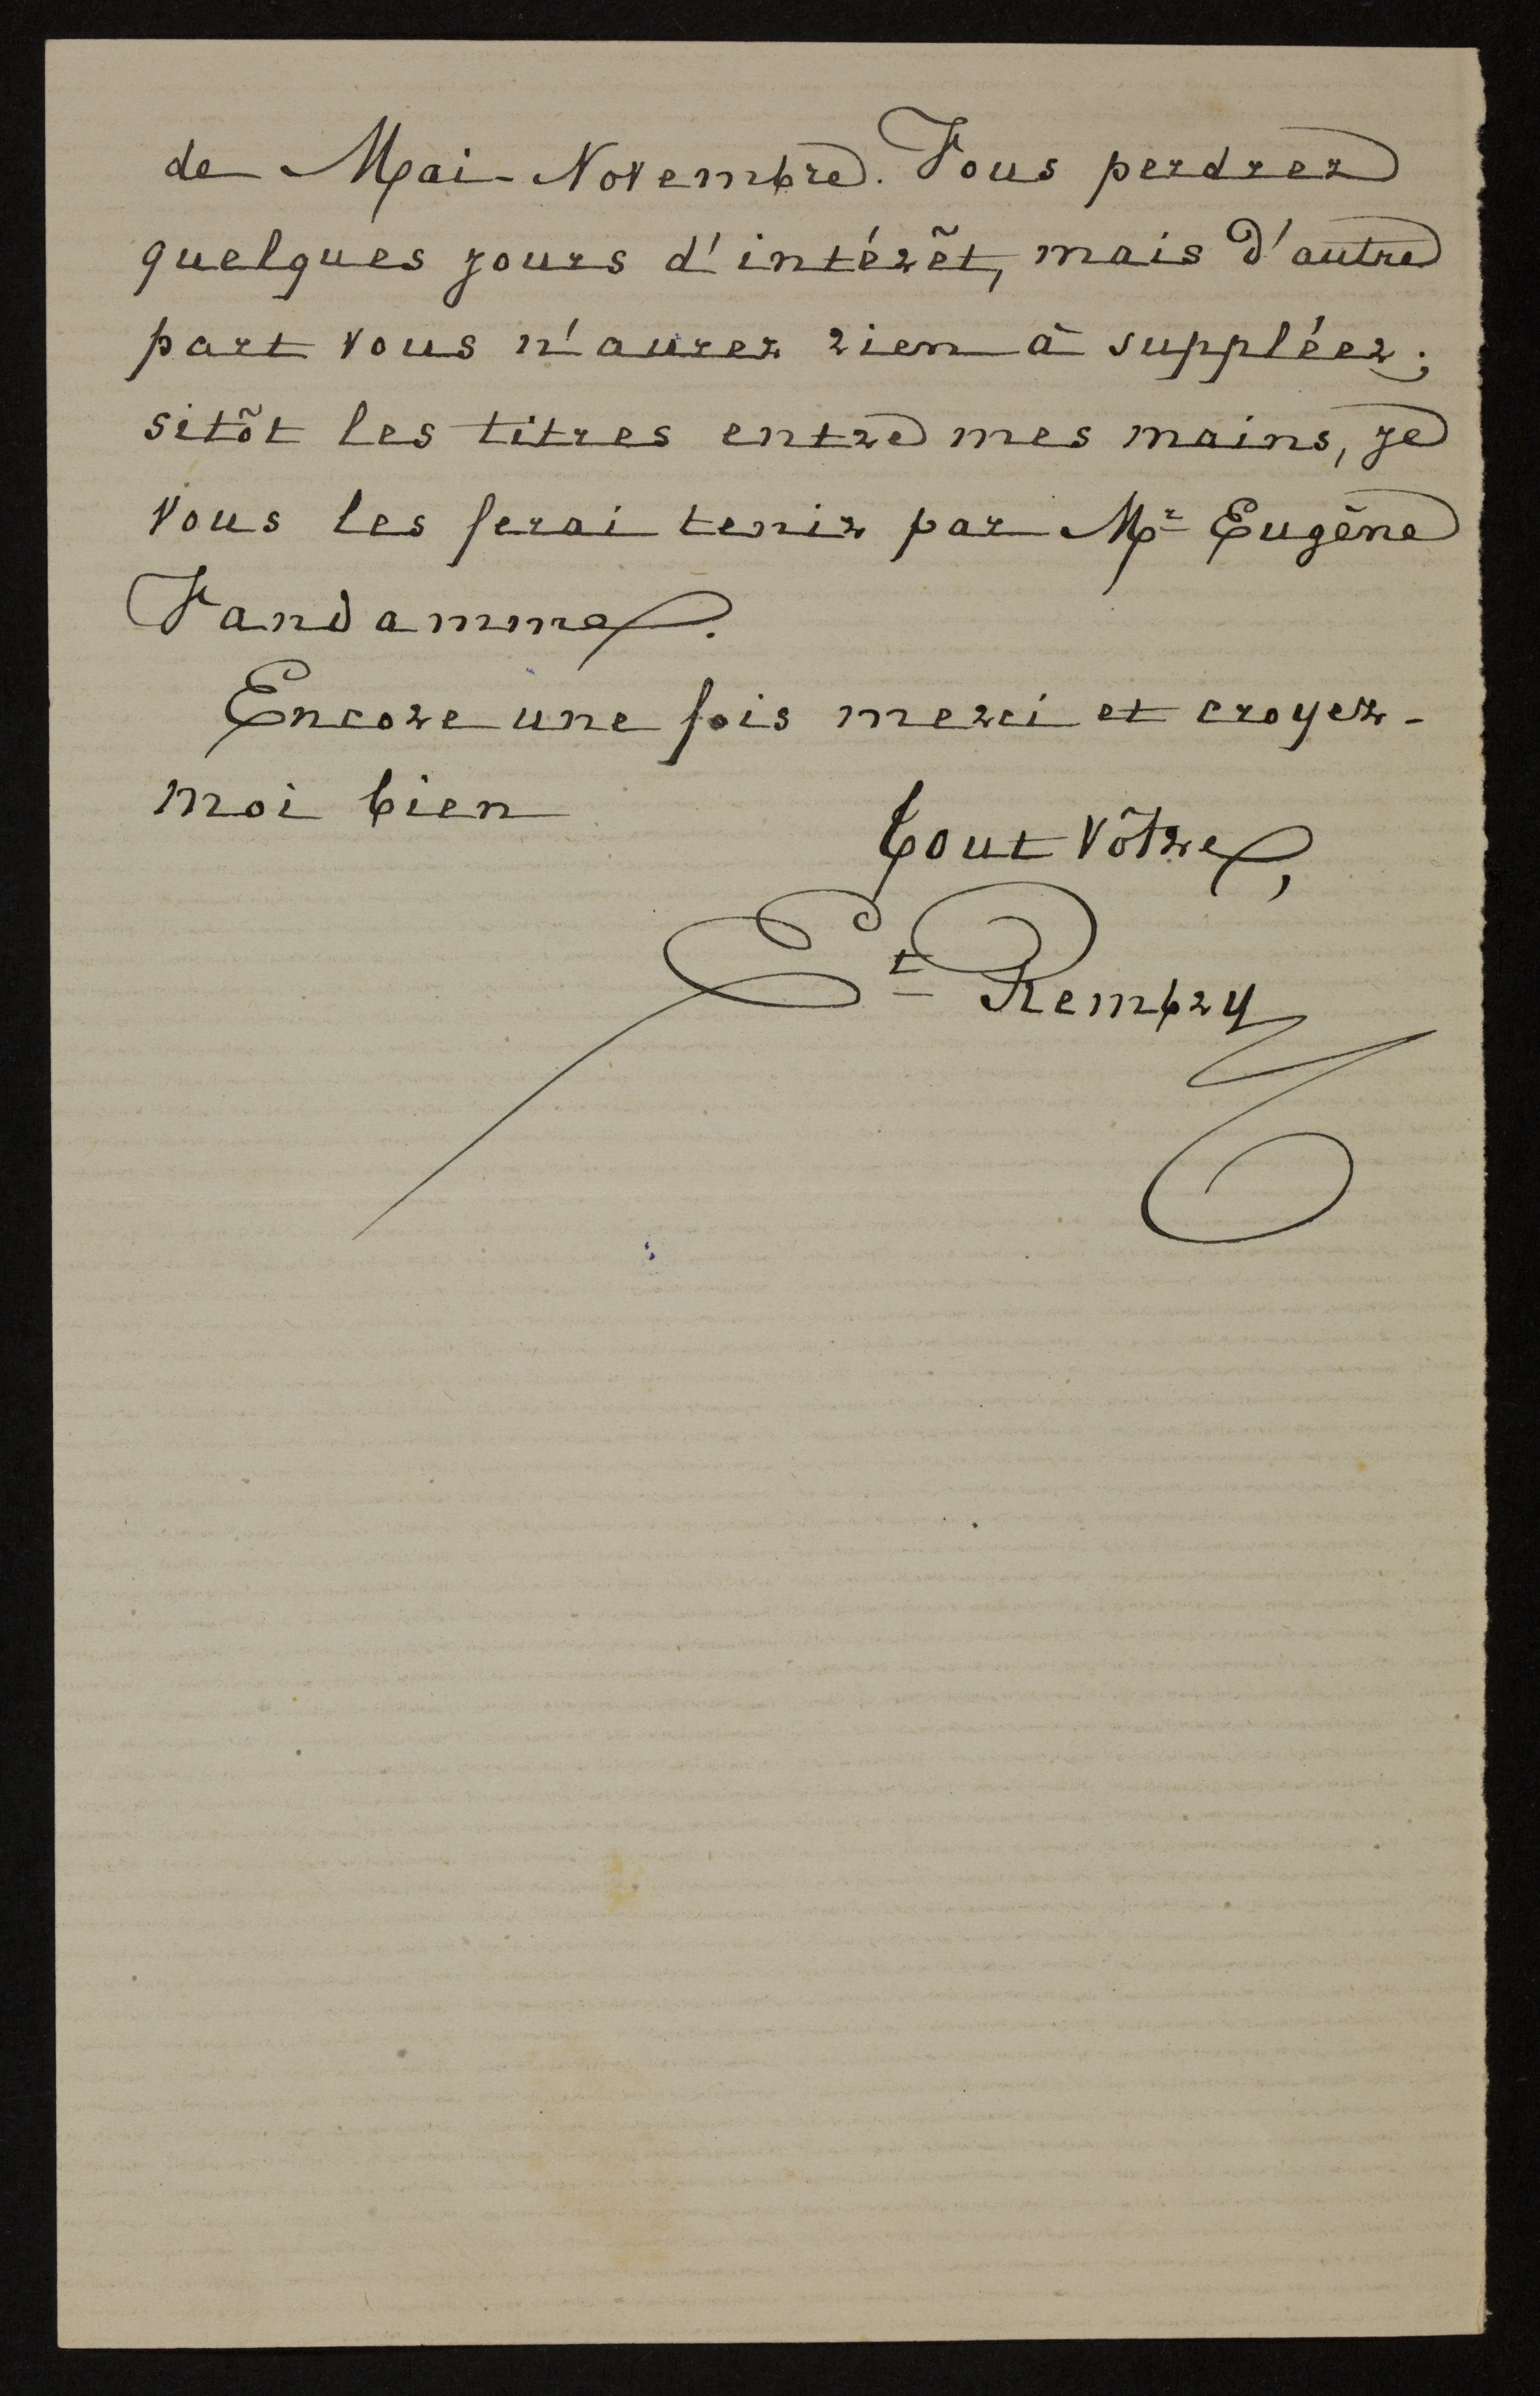 de Mai-Novembre. Vous perdrez
quelques jours d'intérêt, mais d'autre
part vous n'aurez rien à suppléer;
sitôt les titres entre mes mains, je
vous les ferai tenir par Mr Eugène
Vandamme.
Encore une fois merci et croyez-
moi bien
tout vôtre,
Et Rembry